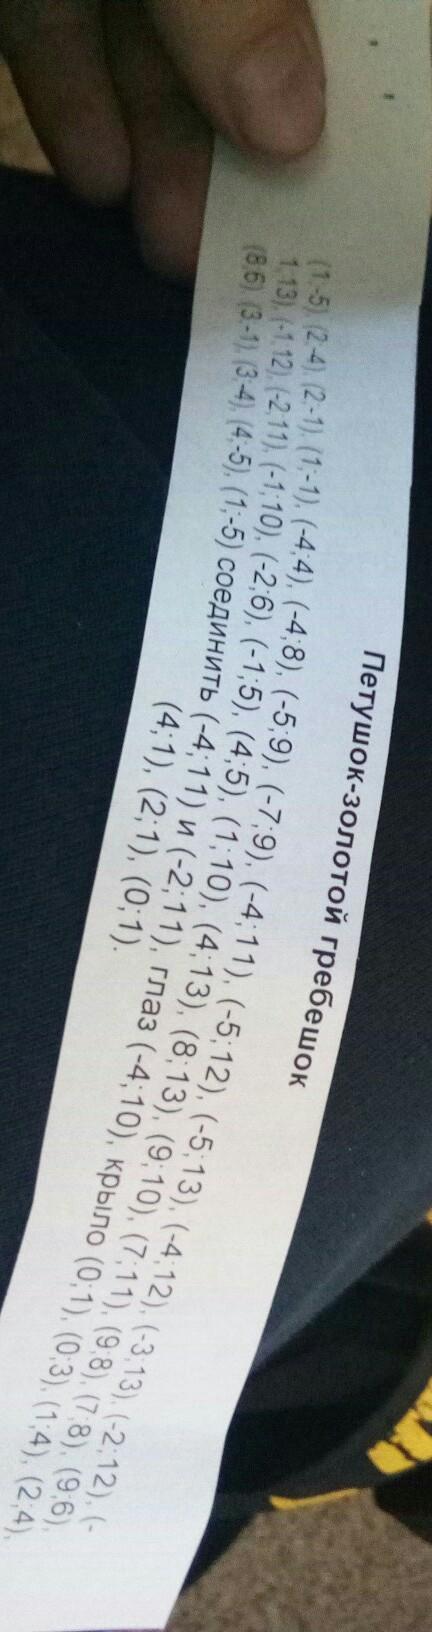 Петушок-золотой гребешок
(1;-5), (2;-4), (2;-1), (1;-1), (-4;4), (-4;8), (-5;9), (-7;9), (-4;11), (-5;12), (-5;13), (-4;12), (-3;13), (-2;12), (-
1;13), (-1;12), (-2;11), (-1;10), (-2;6), (-1;5), (4;5), (1;10), (4;13), (8;13), (9;10), (7;11), (9;8), (7;8), (9;6),
(8;6), (3;-1), (3;-4), (4;-5), (1;-5) соединить (-4;11) и (-2;11), глаз (-4;10), крыло (0;1), (0;3), (1;4), (2;4),
(4;1), (2;1), (0;1).